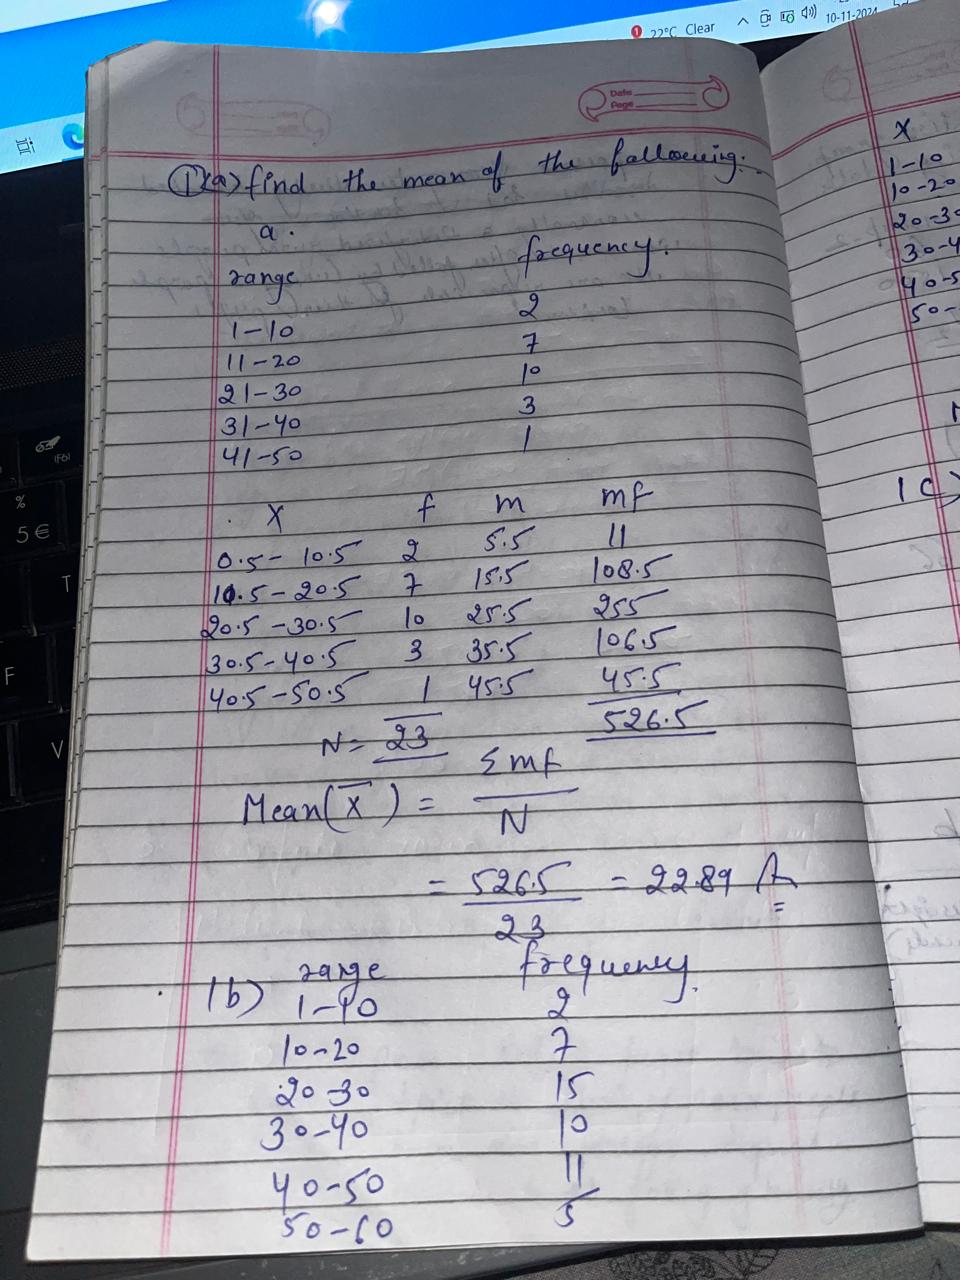 22°C Clear
10-11-2024
Date
Page
1(a) find the mean of the following.
a.
range frequency.
1-10 2
11-20 7
21-30 10
31-40 3
41-50 1
X f m mf
0.5-10.5 2 5.5 11
10.5-20.5 7 15.5 108.5
20.5-30.5 10 25.5 255
30.5-40.5 3 35.5 106.5
40.5-50.5 1 45.5 45.5
N= 23 526.5
Mean(X̅) = Σmf / N
= 526.5 / 23 = 22.89
1b) range frequency.
1-10 2
10-20 7
20-30 15
30-40 10
40-50 11
50-60 5
X
1-10
10-20
20-30
30-4
40-5
50-
1c)
%
5 €
T
F
V
(F6)